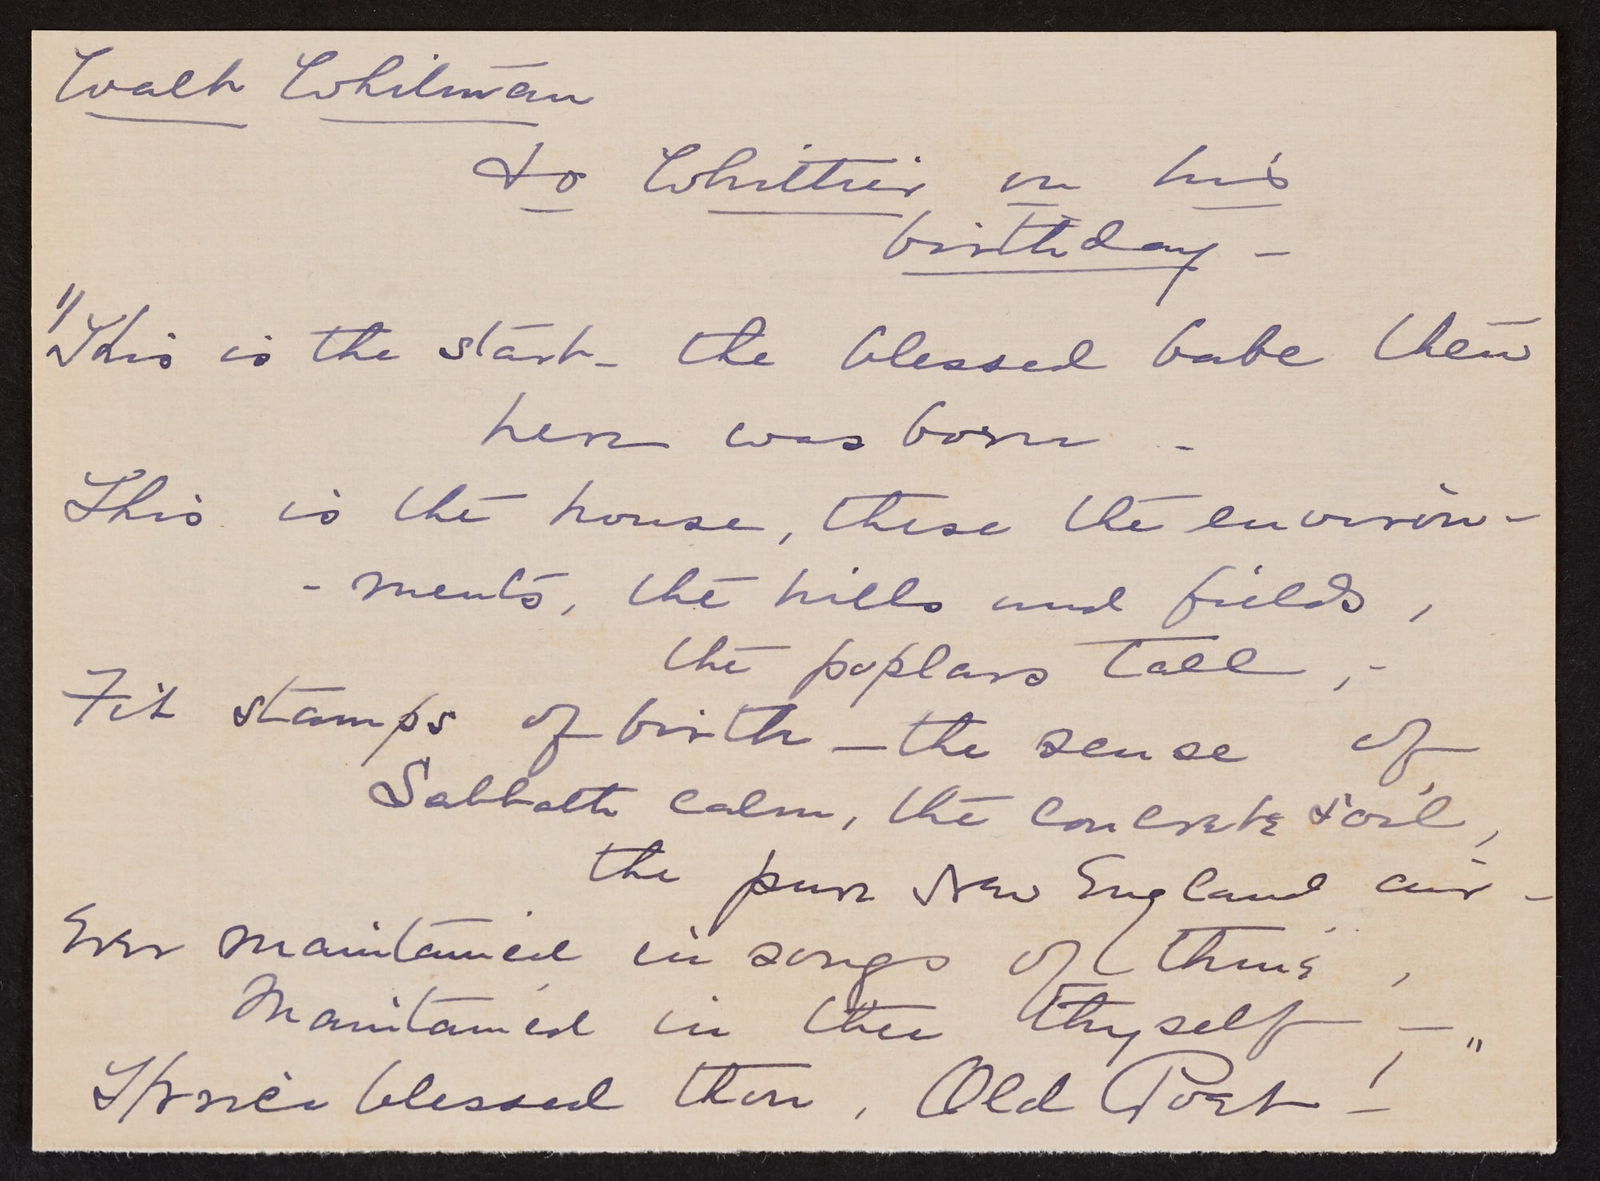 Walt Whitman
to Whittier on his
birthday -
"This is the start - the blessed babe then
here was born -
This is the house, these the environ-
- ments, the hills and fields,
the poplars tall, -
Fit stamps of birth - the sense of
Sabbath calm, the concrete soil,
the pure New England air -
Ever maintained in songs of thine,
Maintained in thee thyself - "
Thrice blessed thou, Old Poet!